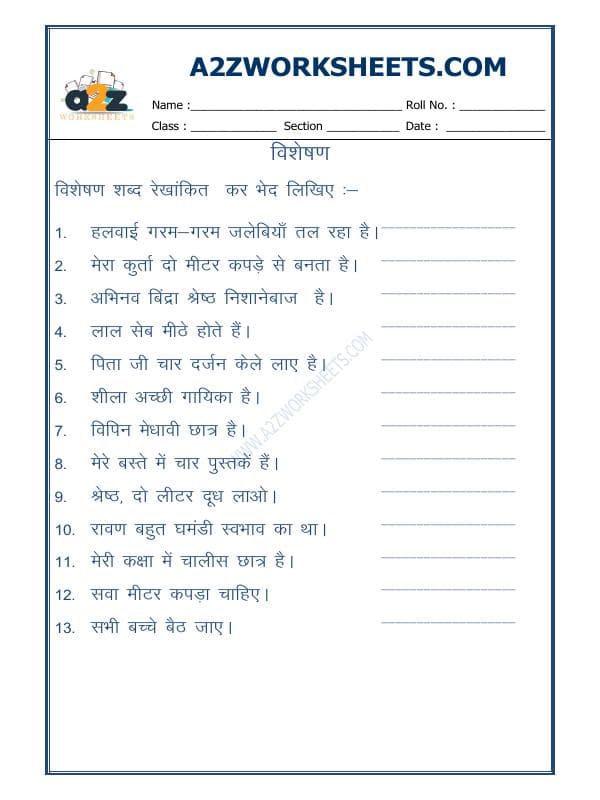 A2ZWORKSHEETS.COM
a2z
WORKSHEETS
Name :______________________________ Roll No. : ____________
Class : ____________ Section __________ Date : ______________
विशेषण
विशेषण शब्द रेखांकित कर भेद लिखिए :–
1. हलवाई गरम–गरम जलेबियाँ तल रहा है। ___________________
2. मेरा कुर्ता दो मीटर कपड़े से बनता है। ___________________
3. अभिनव बिंद्रा श्रेष्ठ निशानेबाज है। ___________________
4. लाल सेब मीठे होते हैं। ___________________
5. पिता जी चार दर्जन केले लाए है। ___________________
6. शीला अच्छी गायिका है। ___________________
7. विपिन मेधावी छात्र है। ___________________
8. मेरे बस्ते में चार पुस्तकें हैं। ___________________
9. श्रेष्ठ, दो लीटर दूध लाओ। ___________________
10. रावण बहुत घमंडी स्वभाव का था। ___________________
11. मेरी कक्षा में चालीस छात्र है। ___________________
12. सवा मीटर कपड़ा चाहिए। ___________________
13. सभी बच्चे बैठ जाए। ___________________
WWW.A2ZWORKSHEETS.COM